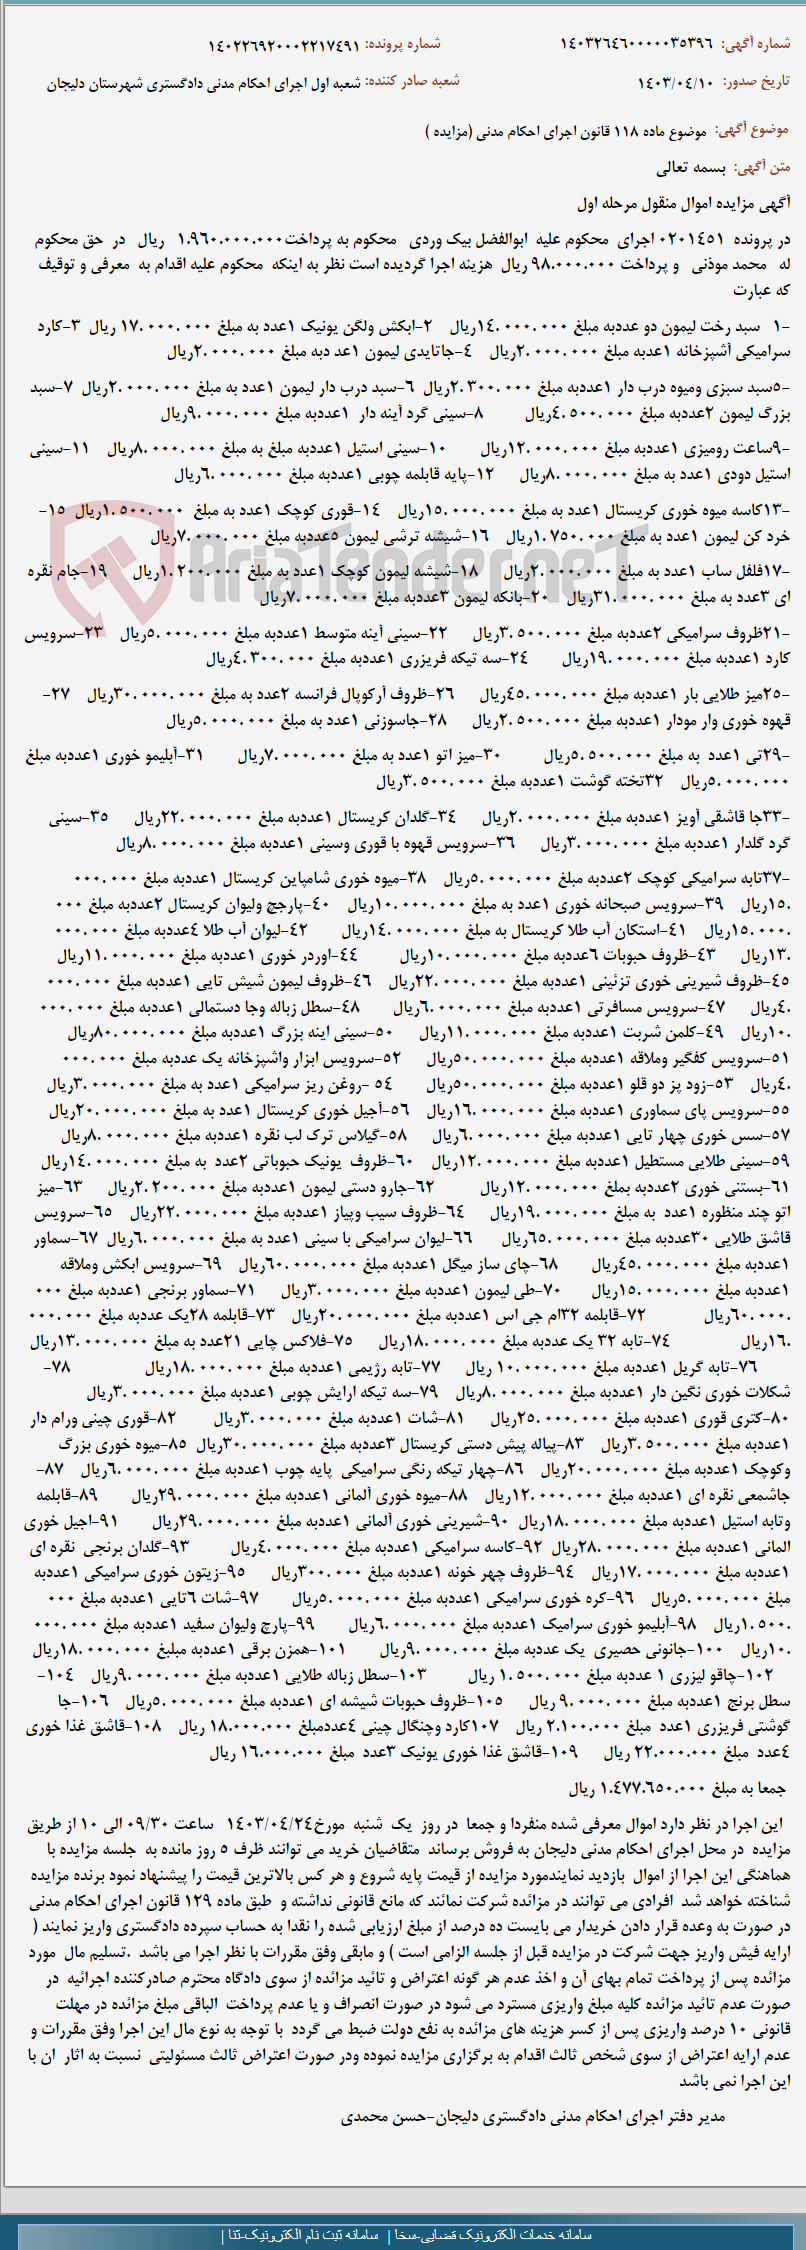 شماره آگهی: ۱۴۰۳۲۶۴۶۰۰۰۰۰۳۵۳۹۶ شماره پرونده: ۱۴۰۲۲۶۹۲۰۰۰۲۲۱۷۴۹۱
تاریخ صدور: ۱۴۰۳/۰۴/۱۰ شعبه صادر کننده: شعبه اول اجرای احکام مدنی دادگستری شهرستان دلیجان
موضوع آگهی: موضوع ماده ۱۱۸ قانون اجرای احکام مدنی (مزایده )
متن آگهی: بسمه تعالی
آگهی مزایده اموال منقول مرحله اول
در پرونده ۰۲۰۱۴۵۱ اجرای محکوم علیه ابوالفضل بیک وردی محکوم به پرداخت۱.۹۶۰.۰۰۰.۰۰۰ ریال در حق محکوم
له محمد موذنی و پرداخت ۹۸.۰۰۰.۰۰۰ ریال هزینه اجرا گردیده است نظر به اینکه محکوم علیه اقدام به معرفی و توقیف
که عبارت
-۱ سبد رخت لیمون دو عددبه مبلغ ۱۴.۰۰۰.۰۰۰ریال ۲-ابکش ولگن یونیک ۱عدد به مبلغ ۱۷.۰۰۰.۰۰۰ ریال ۳-کارد
سرامیکی آشپزخانه ۱عدبه مبلغ ۲.۰۰۰.۰۰۰ریال ۴-جاتایدی لیمون ۱عد دبه مبلغ ۲.۰۰۰.۰۰۰ریال
-۵سبد سبزی ومیوه درب دار ۱عددبه مبلغ ۲.۳۰۰.۰۰۰ریال ۶-سبد درب دار لیمون ۱عدد به مبلغ ۲.۰۰۰.۰۰۰ریال ۷-سبد
بزرگ لیمون ۲عددبه مبلغ ۴.۵۰۰.۰۰۰ریال ۸-سینی گرد آینه دار ۱عددبه مبلغ ۹.۰۰۰.۰۰۰ریال
-۹ساعت رومیزی ۱عددبه مبلغ ۱۲.۰۰۰.۰۰۰ریال ۱۰-سینی استیل ۱عددبه مبلغ به مبلغ ۸.۰۰۰.۰۰۰ریال ۱۱-سینی
استیل دودی ۱عدد به مبلغ ۸.۰۰۰.۰۰۰ریال ۱۲-پایه قابلمه چوبی ۱عددبه مبلغ ۶.۰۰۰.۰۰۰ریال
-۱۳کاسه میوه خوری کریستال ۱عدد به مبلغ ۱۵.۰۰۰.۰۰۰ریال ۱۴-قوری کوچک ۱عدد به مبلغ ۱.۵۰۰.۰۰۰ریال ۱۵-
خرد کن لیمون ۱عدد به مبلغ ۱.۷۵۰.۰۰۰ریال ۱۶-شیشه ترشی لیمون ۵عددبه مبلغ ۷.۰۰۰.۰۰۰ریال
-۱۷فلفل ساب ۱عدد به مبلغ ۲.۰۰۰.۰۰۰ریال ۱۸-شیشه لیمون کوچک ۱عدد به مبلغ ۱.۲۰۰.۰۰۰ریال ۱۹-جام نقره
ای ۳عدد به مبلغ ۳۱.۰۰۰.۰۰۰ریال ۲۰-بانکه لیمون ۳عددبه مبلغ ۷.۰۰۰.۰۰۰ریال
-۲۱ظروف سرامیکی ۲عددبه مبلغ ۳.۵۰۰.۰۰۰ریال ۲۲-سینی آینه متوسط ۱عددبه مبلغ ۵.۰۰۰.۰۰۰ریال ۲۳-سرویس
کارد ۱عددبه مبلغ ۱۹.۰۰۰.۰۰۰ریال ۲۴-سه تیکه فریزری ۱عددبه مبلغ ۴.۳۰۰.۰۰۰ریال
-۲۵میز طلایی بار ۱عددبه مبلغ ۴۵.۰۰۰.۰۰۰ریال ۲۶-ظروف آرکوپال فرانسه ۲عدد به مبلغ ۳۰.۰۰۰.۰۰۰ریال ۲۷-
قهوه خوری وار مودار ۱عددبه مبلغ ۲.۵۰۰.۰۰۰ریال ۲۸-جاسوزنی ۱عدد به مبلغ ۵.۰۰۰.۰۰۰ریال
-۲۹تی ۱عدد به مبلغ ۵.۵۰۰.۰۰۰ریال ۳۰-میز اتو ۱عدد به مبلغ ۷.۰۰۰.۰۰۰ریال ۳۱-آبلیمو خوری ۱عددبه مبلغ
۵.۰۰۰.۰۰۰ریال ۳۲تخته گوشت ۱عددبه مبلغ ۳.۵۰۰.۰۰۰ریال
-۳۳جا قاشقی آویز ۱عددبه مبلغ ۲.۰۰۰.۰۰۰ریال ۳۴-گلدان کریستال ۱عددبه مبلغ ۲۲.۰۰۰.۰۰۰ریال ۳۵-سینی
گرد گلدار ۱عددبه مبلغ ۳.۰۰۰.۰۰۰ریال ۳۶-سرویس قهوه با قوری وسینی ۱عددبه مبلغ ۸.۰۰۰.۰۰۰ریال
-۳۷تابه سرامیکی کوچک ۲عددبه مبلغ ۵.۰۰۰.۰۰۰ریال ۳۸-میوه خوری شامپاین کریستال ۱عددبه مبلغ ۰۰۰.۰۰۰
.۱۵ریال ۳۹-سرویس صبحانه خوری ۱عدد به مبلغ ۱۰.۰۰۰.۰۰۰ریال ۴۰-پارجچ ولیوان کریستال ۲عددبه مبلغ ۰۰۰
.۱۵.۰۰۰ریال ۴۱-استکان آب طلا کریستال به مبلغ ۱۴.۰۰۰.۰۰۰ریال ۴۲-لیوان آب طلا ۴عددبه مبلغ ۰۰۰.۰۰۰
.۱۳ریال ۴۳-ظروف حبوبات ۶عددبه مبلغ ۱۰.۰۰۰.۰۰۰ریال ۴۴-اوردر خوری ۱عددبه مبلغ ۱۱.۰۰۰.۰۰۰ریال
۴۵-ظروف شیرینی خوری تزئینی ۱عددبه مبلغ ۲۲.۰۰۰.۰۰۰ریال ۴۶-ظروف لیمون شیش تایی ۱عددبه مبلغ ۰۰۰.۰۰۰
.۴ریال ۴۷-سرویس مسافرتی ۱عددبه مبلغ ۶.۰۰۰.۰۰۰ریال ۴۸-سطل زباله وجا دستمالی ۱عددبه مبلغ ۰۰۰.۰۰۰
.۱۰ریال ۴۹-کلمن شربت ۱عددبه مبلغ ۱۱.۰۰۰.۰۰۰ریال ۵۰-سینی اینه بزرگ ۱عددبه مبلغ ۸۰.۰۰۰.۰۰۰ریال
۵۱-سرویس کفگیر وملاقه ۱عددبه مبلغ ۵۰.۰۰۰.۰۰۰ریال ۵۲-سرویس ابزار واشپزخانه یک عددبه مبلغ ۰۰۰.۰۰۰
.۴ریال ۵۳-زود پز دو قلو ۱عددبه مبلغ ۵۰.۰۰۰.۰۰۰ریال ۵۴ -روغن ریز سرامیکی ۱عدد به مبلغ ۳.۰۰۰.۰۰۰ریال
۵۵-سرویس پای سماوری ۱عددبه مبلغ ۱۶.۰۰۰.۰۰۰ریال ۵۶-آجیل خوری کریستال ۱عدد به مبلغ ۲۰.۰۰۰.۰۰۰ریال
۵۷-سس خوری چهار تایی ۱عددبه مبلغ ۶.۰۰۰.۰۰۰ریال ۵۸-گیلاس ترک لب نقره ۱عددبه مبلغ ۸.۰۰۰.۰۰۰ریال
۵۹-سینی طلایی مستطیل ۱عددبه مبلغ ۱۲.۰۰۰.۰۰۰ریال ۶۰-ظروف یونیک حبوباتی ۲عدد به مبلغ ۱۴.۰۰۰.۰۰۰ریال
۶۱-بستنی خوری ۲عددبه بملغ ۱۲.۰۰۰.۰۰۰ریال ۶۲-جارو دستی لیمون ۱عددبه مبلغ ۲.۲۰۰.۰۰۰ریال ۶۳-میز
اتو چند منظوره ۱عدد به مبلغ ۱۹.۰۰۰.۰۰۰ریال ۶۴-ظروف سیب وپیاز ۱عددبه مبلغ ۲۲.۰۰۰.۰۰۰ریال ۶۵-سرویس
قاشق طلایی ۳۰عددبه مبلغ ۶۵.۰۰۰.۰۰۰ریال ۶۶-لیوان سرامیکی با سینی ۱عدد به مبلغ ۶.۰۰۰.۰۰۰ریال ۶۷-سماور
۱عددبه مبلغ ۴۵.۰۰۰.۰۰۰ریال ۶۸-چای ساز میگل ۱عددبه مبلغ ۶۰.۰۰۰.۰۰۰ریال ۶۹-سرویس ابکش وملاقه
۱عددبه مبلغ ۱۵.۰۰۰.۰۰۰ریال ۷۰-طی لیمون ۱عددبه مبلغ ۳.۰۰۰.۰۰۰ریال ۷۱-سماور برنجی ۱عددبه مبلغ ۰۰۰
.۶۰.۰۰۰ریال ۷۲-قابلمه ۳۲ام جی اس ۱عددبه مبلغ ۲۰.۰۰۰.۰۰۰ریال ۷۳-قابلمه ۲۸یک عددبه مبلغ ۰۰۰.۰۰۰
.۱۶ریال ۷۴-تابه ۳۲ یک عددبه مبلغ ۱۸.۰۰۰.۰۰۰ریال ۷۵-فلاکس چایی ۲۱عدد به مبلغ ۱۳.۰۰۰.۰۰۰ریال
۷۶-تابه گریل ۱عددبه مبلغ ۱۰.۰۰۰.۰۰۰ ریال ۷۷-تابه رژیمی ۱عددبه مبلغ ۱۸.۰۰۰.۰۰۰ریال ۷۸-
شکلات خوری نگین دار ۱عددبه مبلغ ۸.۰۰۰.۰۰۰ریال ۷۹-سه تیکه ارایش چوبی ۱عددبه مبلغ ۳.۰۰۰.۰۰۰ریال
۸۰-کتری قوری ۱عددبه مبلغ ۲۵.۰۰۰.۰۰۰ریال ۸۱-شات ۱عددبه مبلغ ۳.۰۰۰.۰۰۰ریال ۸۲-قوری چینی ورام دار
۱عددبه مبلغ ۳.۵۰۰.۰۰۰ریال ۸۳-پیاله پیش دستی کریستال ۳عددبه مبلغ ۳۰.۰۰۰.۰۰۰ریال ۸۵-میوه خوری بزرگ
وکوچک ۱عددبه مبلغ ۲۰.۰۰۰.۰۰۰ریال ۸۶-چهار تیکه رنگی سرامیکی پایه چوب ۱عددبه مبلغ ۶.۰۰۰.۰۰۰ریال ۸۷-
جاشمعی نقره ای ۱عددبه مبلغ ۱۲.۰۰۰.۰۰۰ریال ۸۸-میوه خوری آلمانی ۱عددبه مبلغ ۲۹.۰۰۰.۰۰۰ریال ۸۹-قابلمه
وتابه استیل ۱عددبه مبلغ ۱۸.۰۰۰.۰۰۰ریال ۹۰-شیرینی خوری آلمانی ۱عددبه مبلغ ۲۹.۰۰۰.۰۰۰ریال ۹۱-اجیل خوری
المانی ۱عددبه مبلغ ۲۸.۰۰۰.۰۰۰ریال ۹۲-کاسه سرامیکی ۱عددبه مبلغ ۴.۰۰۰.۰۰۰ریال ۹۳-گلدان برنجی نقره ای
۱عددبه مبلغ ۱۷.۰۰۰.۰۰۰ریال ۹۴-ظروف چهر خونه ۱عددبه مبلغ ۳۰۰.۰۰۰ریال ۹۵-زیتون خوری سرامیکی ۱عددبه
مبلغ ۵.۰۰۰.۰۰۰ریال ۹۶-کره خوری سرامیکی ۱عددبه مبلغ ۵.۰۰۰.۰۰۰ریال ۹۷-شات ۶تایی ۱عددبه مبلغ ۰۰۰
.۱.۵۰۰ریال ۹۸-آبلیمو خوری سرامیک ۱عددبه مبلغ ۶.۰۰۰.۰۰۰ریال ۹۹-پارچ ولیوان سفید ۱عددبه مبلغ ۰۰۰.۰۰۰
.۱۰ریال ۱۰۰-جانونی حصیری یک عددبه مبلغ ۹.۰۰۰.۰۰۰ریال ۱۰۱-همزن برقی ۱عددبه مبلبغ ۱۸.۰۰۰.۰۰۰ریال
۱۰۲-چاقو لیزری ۱ عددبه مبلغ ۱.۵۰۰.۰۰۰ ریال ۱۰۳-سطل زباله طلایی ۱عددبه مبلغ ۹.۰۰۰.۰۰۰ریال ۱۰۴-
سطل برنج ۱عددبه مبلغ ۹.۰۰۰.۰۰۰ ریال ۱۰۵-ظروف حبوبات شیشه ای ۱عددبه مبلغ ۵.۰۰۰.۰۰۰ریال ۱۰۶-جا
گوشتی فریزری ۱عدد مبلغ ۲.۱۰۰.۰۰۰ ریال ۱۰۷کارد وچنگال چینی ۴عددمبلغ ۱۸.۰۰۰.۰۰۰ ریال ۱۰۸-قاشق غذا خوری
۴عدد مبلغ ۲۲.۰۰۰.۰۰۰ ریال ۱۰۹-قاشق غذا خوری یونیک ۳عدد مبلغ ۱۶.۰۰۰.۰۰۰ ریال
جمعا به مبلغ ۱.۴۷۷.۶۵۰.۰۰۰ ریال
این اجرا در نظر دارد اموال معرفی شده منفردا و جمعا در روز یک شنبه مورخ۱۴۰۳/۰۴/۲۴ ساعت ۰۹/۳۰ الی ۱۰ از طریق
مزایده در محل اجرای احکام مدنی دلیجان به فروش برساند متقاضیان خرید می توانند ظرف ۵ روز مانده به جلسه مزایده با
هماهنگی این اجرا از اموال بازدید نمایندمورد مزایده از قیمت پایه شروع و هر کس بالاترین قیمت را پیشنهاد نمود برنده مزایده
شناخته خواهد شد افرادی می توانند در مزائده شرکت نمائند که مانع قانونی نداشته و طبق ماده ۱۲۹ قانون اجرای احکام مدنی
در صورت به وعده قرار دادن خریدار می بایست ده درصد از مبلغ ارزیابی شده را نقدا به حساب سپرده دادگستری واریز نمایند (
ارایه فیش واریز جهت شرکت در مزایده قبل از جلسه الزامی است ) و مابقی وفق مقررات با نظر اجرا می باشد .تسلیم مال مورد
مزائده پس از پرداخت تمام بهای آن و اخذ عدم هر گونه اعتراض و تائید مزائده از سوی دادگاه محترم صادرکننده اجرائیه در
صورت عدم تائید مزائده کلیه مبلغ واریزی مسترد می شود در صورت انصراف و یا عدم پرداخت الباقی مبلغ مزائده در مهلت
قانونی ۱۰ درصد واریزی پس از کسر هزینه های مزائده به نفع دولت ضبط می گردد با توجه به نوع مال این اجرا وفق مقررات و
عدم ارایه اعتراض از سوی شخص ثالث اقدام به برگزاری مزایده نموده ودر صورت اعتراض ثالث مسئولیتی نسبت به اثار ان با
این اجرا نمی باشد
مدیر دفتر اجرای احکام مدنی دادگستری دلیجان-حسن محمدی
سامانه خدمات الکترونیک قضایی-سخا | سامانه ثبت نام الکترونیک-ثنا |
AriaTender.neT